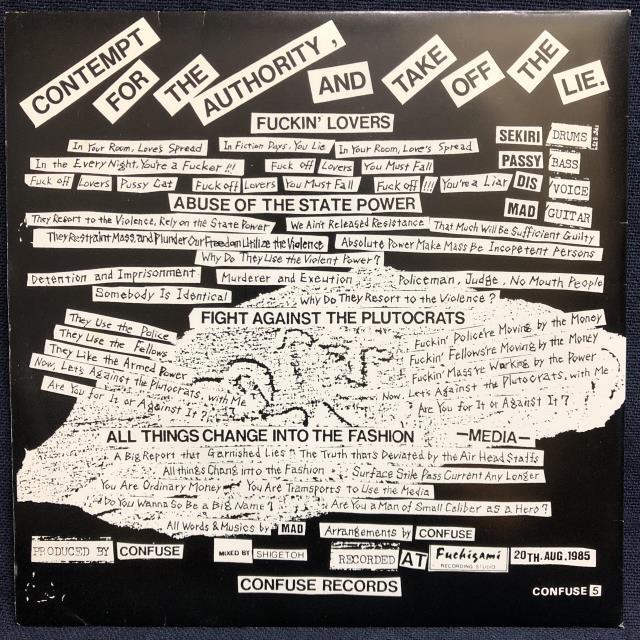 CONTEMPT FOR THE AUTHORITY, AND TAKE OFF THE LIE.
FUCKIN' LOVERS
In Your Room, Love's Spread In Fiction Days, You Lie In Your Room, Love's Spread
In the Every Night, You're a Fucker!!! Fuck off Lovers You Must Fall
Fuck off Lovers Pussy Cat Fuck off Lovers You Must Fall Fuck off!!! You're a Liar
SEKIRI DRUMS
PASSY BASS
DIS VOICE
MAD GUITAR
ABUSE OF THE STATE POWER
They Resort to the Violence, Rely on the State Power We Ain't Released Resistance That Much Will Be Sufficient Guilty
They Restraint Mass, and Plunder Our Freedom Utilize the Violence Absolute Power Make Mass Be Incopetent Persons
Why Do They Use the Violent Power?
Detention and Imprisonment Murderer and Exeution Policeman, Judge, No Mouth People
Somebody Is Identical Why Do They Resort to the Violence?
FIGHT AGAINST THE PLUTOCRATS
They Use the Police
They Use the Fellows
They Like the Armed Power
Now, Let's Against the Plutocrats, with Me
Are You for It or Against It?
Fuckin' Police're Moving by the Money
Fuckin' Fellows're Moving by the Money
Fuckin' Mass're Working by the Power
Now, Let's Against the Plutocrats, with Me
Are You for It or Against It?
ALL THINGS CHANGE INTO THE FASHION —MEDIA—
A Big Report that Garnished Lies The Truth that's Deviated by the Air Head Staffs
All things Chang into the Fashion Surface Stile Pass Current Any Longer
You Are Ordinary Money You Are Transports to Use the Media
Do You Wanna So Be a Big Name? Are You a Man of Small Caliber as a Hero?
All Words & Musics by MAD Arrangements by CONFUSE
PRODUCED BY CONFUSE MIXED BY SHIGETOH RECORDED AT Fuchigami RECORDING STUDIO 20TH. AUG, 1985
CONFUSE RECORDS
CONFUSE 5